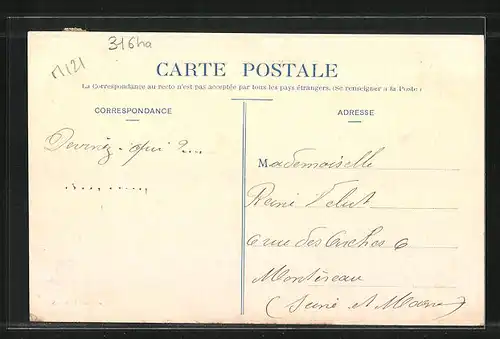 316ha
M121
CARTE POSTALE
La Correspondance au recto n'est pas acceptée par tous les pays étrangers. (Se renseigner à la Poste)
CORRESPONDANCE
ADRESSE
Devinez - qui ?...
Mademoiselle
6 rue des Arches 6
Montereau
(Seine et Marne)